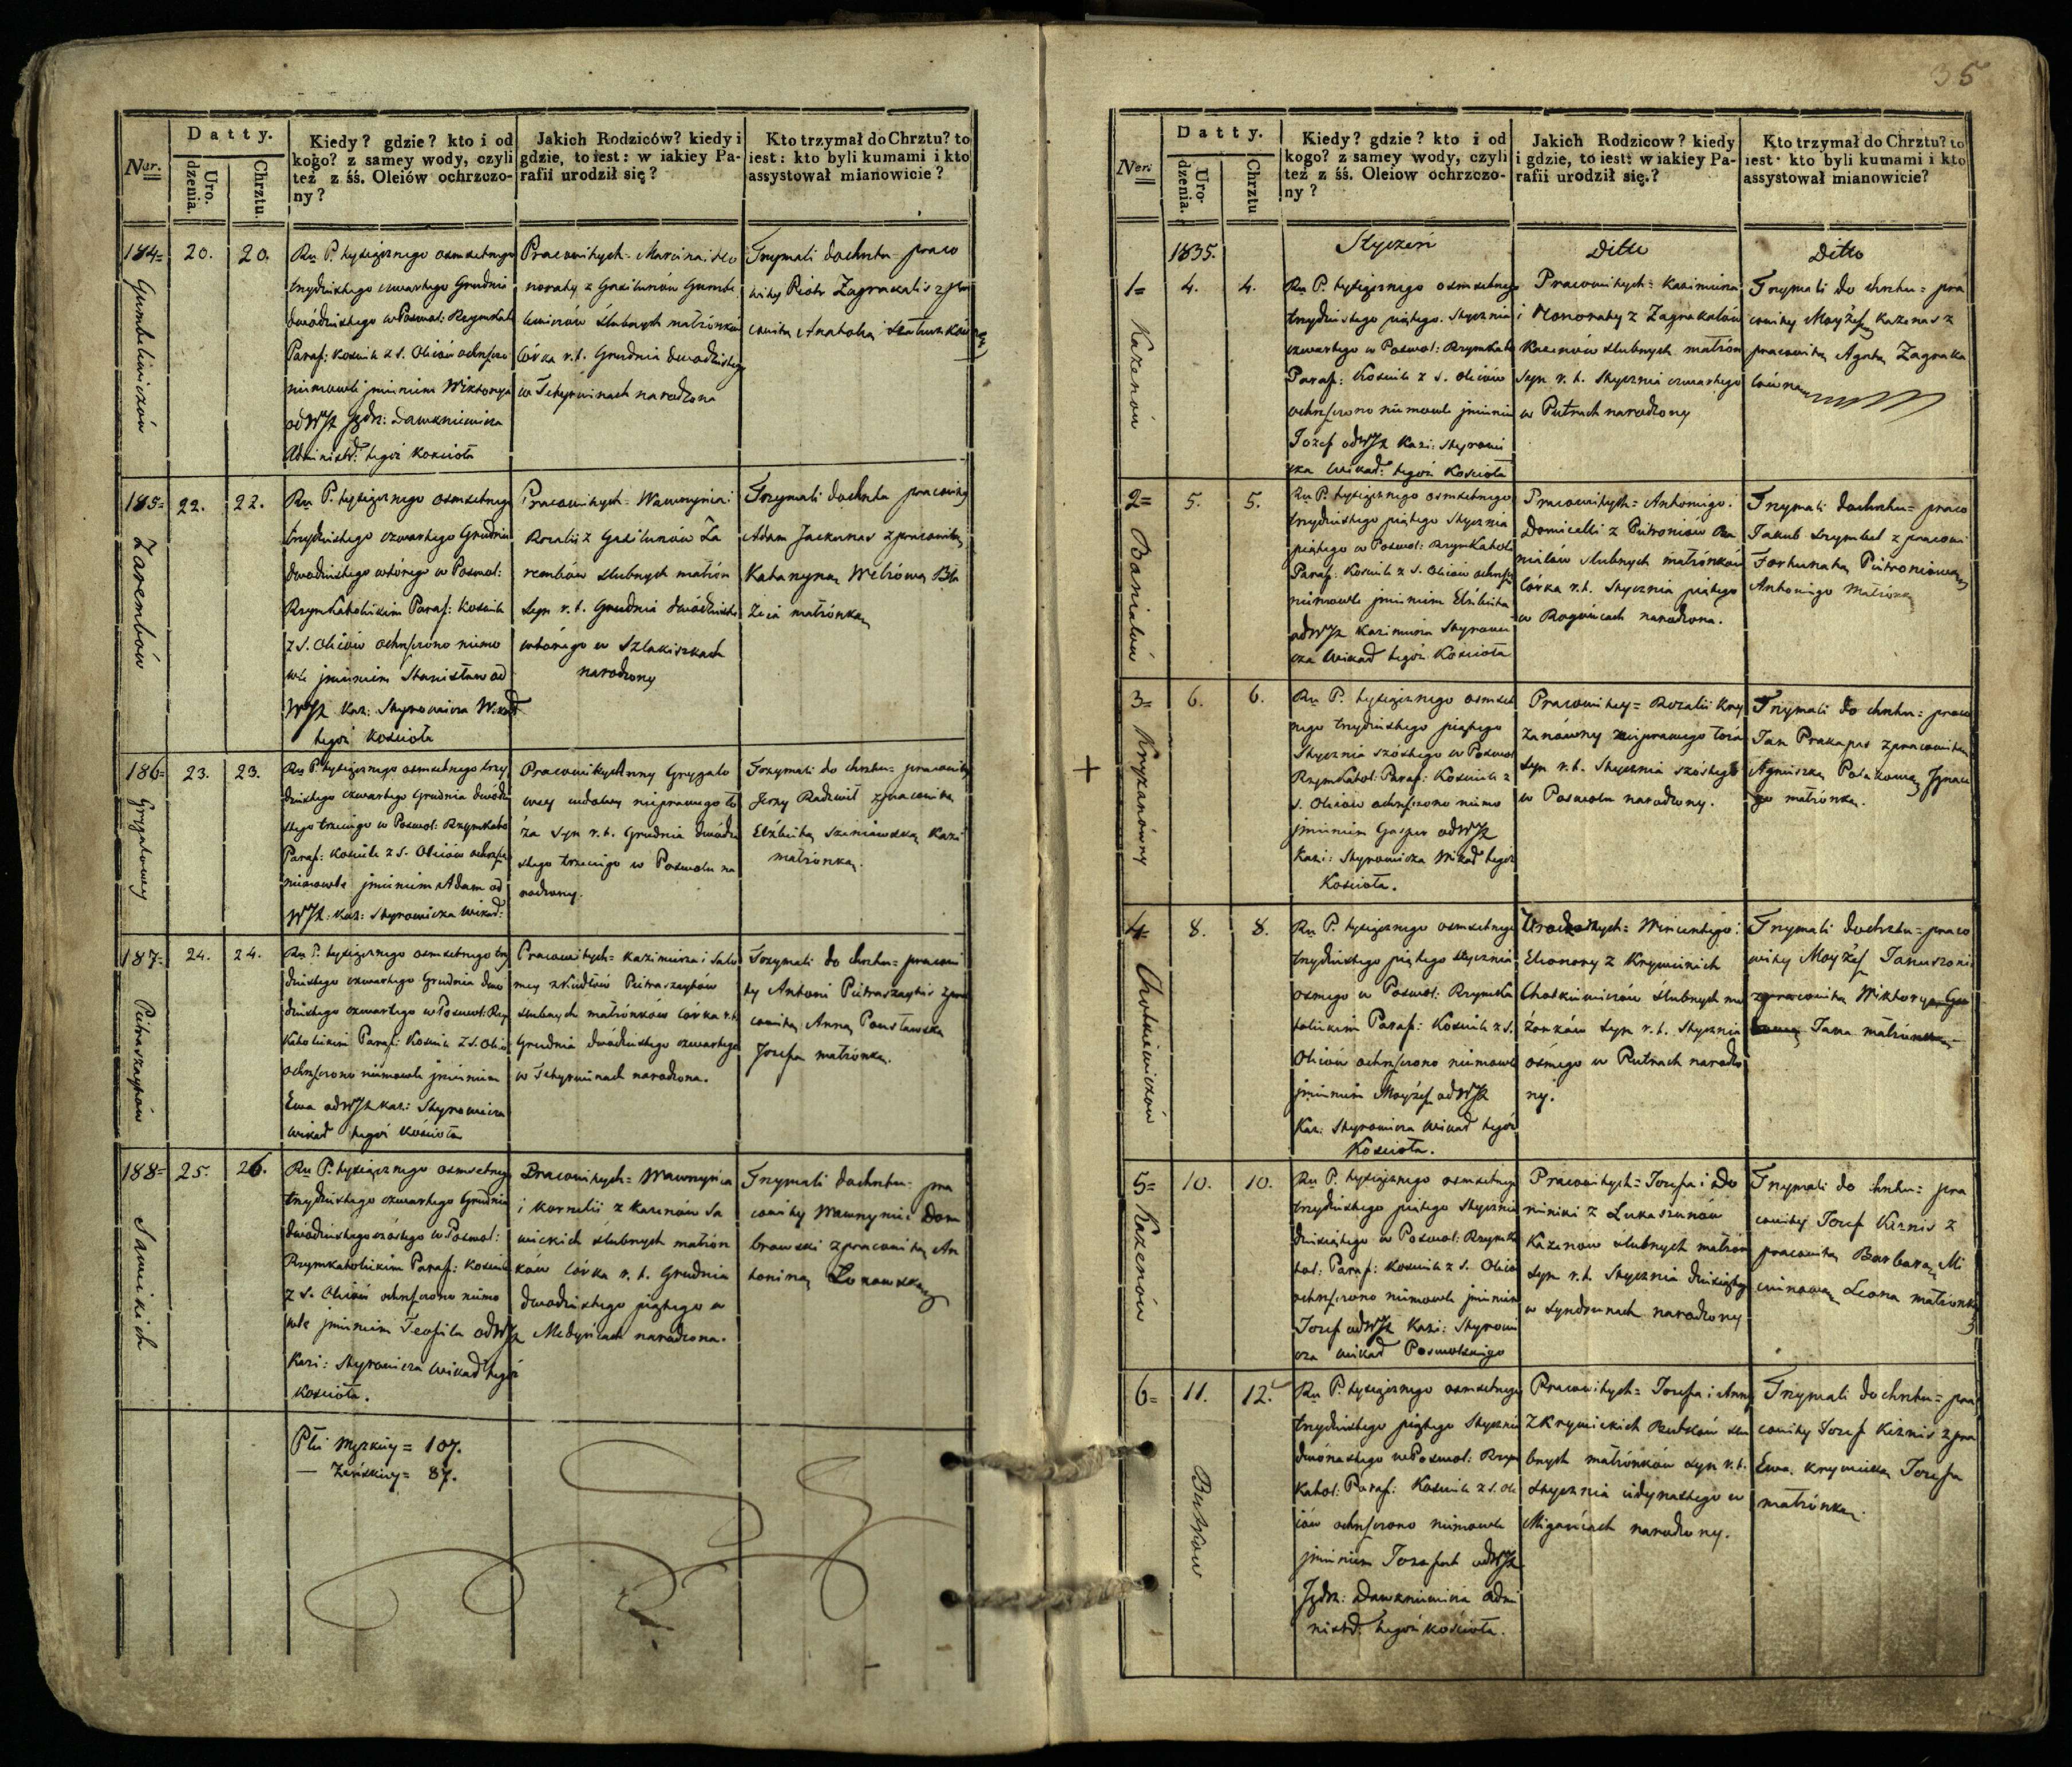 Ner.
Datty.
Uro-
dzenia.
Chrztu.
Kiedy? gdzie? kto i od
kogo? z samey wody, czyli
też z śś. Oleiów ochrzczo-
ny?
Jakich Rodziców? kiedy i
gdzie, to iest: w iakiey Pa-
rafii urodził się?
Kto trzymał do Chrztu? to
iest: kto byli kumami i kto
assystował mianowicie?
184=
Gumbelewiczów
20.
20.
Ru P. tysiącznego osmsetnego
trzydziestego czwartego Grudnia
dwódziestego w Poswol: Rzymkato
Paraf: kosciele z S. Oleiów ochrzczo
imieniem Wiktorya
od WJX Jędr: Dawkniewicza
Administr: tegoż Kościoła
Pracowitych = Marcina i Ho
noraty z Gasiunów Gumbe
lewiczów ślubnych małżonków
córka r. t. Grudnia dwudziestego
w Teterwinach narodzona
Trzymali do chrztu = praco
wity Piotr Zagrakalis z pra
cowitą Anatolią
185=
Zarembów
22.
22.
Ru P. tysiącznego osmsetnego
trzydziestego czwartego Grudnia
dwodziestego wtórego w Poswol:
Rzymkatolickim Paraf: kosciele
z S. Oleiów ochrzczono niemo
wle imieniem Stanisław od
WJX Kaz: Skyrowicza Wikad
tegoż kościoła
Pracowitych = Wawrzynia i
Rozalii z Gasiunów Za
rembów ślubnych małżon
syn r. t. Grudnia dwódziesto
wtórego w Szlakiszkach
narodzony
Trzymali do chrztu pracowity
Adam Jackunas z pracowitą
Katarzyną
żeia małżonką
186=
Grygałowey
23.
23.
Ru P. tysiącznego osmsetnego trzy
dziestego czwartego Grudnia dwódzie
stego trzeciego w Poswol: Rzymkato
Paraf: kosciele z S. Oleiów ochrzczo
niemowle imieniem Adam od
WJX: Kaz: Skyrowicza Wikad:
Pracowitych Anny Grygało
wey wdowy nieprawego ło
ża syn r. t. Grudnia dwódzie
stego trzeciego w Poswolu na
rodzony.
Trzymali do chrztu = pracowity
Jerzy Radziwił z pracowitą
Elżbietą Szeniawską Kazi
małżonką.
187=
Pietraszaytów
24.
24.
Ru P. tysiącznego osmsetnego trzy
dziestego czwartego Grudnia dwo
dziestego czwartego w Poswol: Rzy
katolickim Paraf: kosciele z S. Oleió
ochrzczono niemowle imieniem
Ewa od WJX Kaz: Skyrowicza
wikad tegoż kościoła
Pracowitych = Kazimierza i Salo
mey z Pietraszaytów
ślubnych małżonków córka r. t.
Grudnia dwódziestego czwartego
w Teterwinach narodzona.
Trzymali do chrztu = pracowi
ty Antoni Pietraszaytis z pra
cowitą Anną
Jozefa małżonką.
188=
Sawickich
25.
26.
Ru P. tysiącznego osmsetnego
trzydziestego czwartego Grudnia
dwódziestego szóstego w Poswol:
Rzymkatolickim Paraf: kosciele
z S. Oleiów ochrzczono niemo
wle imieniem Teofila od WJX
Kazi: Skyrowicza wikad tegoż
kościoła.
Pracowitych = Wawrzyńca
i Kornelii z Kazenów Sa
wickich ślubnych małżon
ków córka r. t. Grudnia
dwodziestego piątego w
Medynicach narodzona.
Trzymali do chrztu = pra
cowity Wawrzyniec Dom
browski z pracowitą An
toniną
Płci Męzkiey = 107.
— Żeńskiey = 87.
35
Ner.
Datty.
Uro-
dzenia.
Chrztu
Kiedy? gdzie? kto i od
kogo? z samey wody, czyli
też z śś. Oleiow ochrzczo-
ny?
Jakich Rodzicow? kiedy
i gdzie, to iest: w iakiey Pa-
rafii urodził się.?
Kto trzymał do Chrztu? to
iest· kto byli kumami i kto
assystował mianowicie?
1835.
Styczeń
Ditto
Ditto
1=
Kazenów
4.
4.
Ru P. tysiącznego osmsetnego
trzydziestego piątego Stycznia
czwartego w Poswol: Rzymkato
Paraf: Kosciele z S. Oleiów
ochrzczono niemowle imieniem
Jozef od WJX Kazi: Skyrowi
cza wikad: tegoż Kościoła
Pracowitych = Kazimierza
i Honoraty z Zagrakalów
Kazenów ślubnych małżon
syn r. t. Stycznia czwartego
w Putrach narodzony
Trzymali do chrztu = pra
cowity Moyżesz Kazenas z
pracowitą Agatą Zagraka
lówną
2=
Baniałów
5.
5.
Ru P. tysiącznego osmsetnego
trzydziestego piątego Stycznia
piątego w Poswol: Rzymkatol
Paraf: Kosciele z S. Oleiów ochrzczo
niemowle imieniem Elżbieta
od WJX Kazimierza Skyrowi
cza wikad tegoż Kościoła
Pracowitych = Antoniego i
Domicelli z Pietroniow Ba
niałów ślubnych małżonków
córka r. t. Stycznia piątego
w Rogowcach narodzona.
Trzymali do chrztu = praco
Jakub z pracowi
Fortunatą Pietroniową
Antoniego Małżonką
+
3=
Kryżanówny
6.
6.
Ru P. tysiącznego osmset
nego trzydziestego piątego
Stycznia szóstego w Poswol
Rzymkatol: Paraf: Kosciele z
S. Oleiów ochrzczono niemo
imieniem Gasper od WJX
Kazi: Skyrowicza Wikad tegoż
Kościoła.
Pracowitey = Rozalii Kry
żanówny nieprawego łoża
syn r. t. Stycznia szóstego
w Poswolu narodzony.
Trzymali do chrztu = praco
Jan Prakapas z pracowitą
Agnieszką Polakową Ignace
go małżonką.
4=
Chodkiewiczów
8.
8.
Ru P. tysiącznego osmsetnego
trzydziestego piątego Stycznia
osmego w Poswol: Rzymka
tolickim Paraf: Kosciele z S.
Oleiów ochrzczono niemowle
imieniem Moyżesz od WJX
Kaz: Skyrowicza wikad tegoż
Kościoła.
Urodzonych = Wincentego i
Eleonory z Krywickich
Chodkiewiczów ślubnych ma
żonków syn r. t. Stycznia
osmego w Putrach narodzo
ny.
Trzymali do chrztu = praco
wity Moyżesz Januszonis
z pracowitą Wiktoryą
Jana małżonką
5=
Kazenów
10.
10.
Ru P. tysiącznego osmsetnego
trzydziestego piątego Stycznia
dziesiątego w Poswol: Rzymka
tol: Paraf: Kosciele z S. Oleió
ochrzczono niemowle imieniem
Jozef od WJX Kazi: Skyrowi
cza wikad Poswolskiego
Pracowitych = Jozefa i Do
miniki z Łukaszunów
Kazenow ślubnych małżon
syn r. t. Stycznia dziesiątego
w Syndrunach narodzony
Trzymali do chrztu = pra
cowity Jozef Kiznis z
pracowitą Barbarą Mi
Leona małżonką
6=
Butków
11.
12.
Ru P. tysiącznego osmsetnego
trzydziestego piątego Stycznia
dwónastego w Poswol: Rzym
katol: Paraf: Kosciele z S. Ole
iów ochrzczono niemowle
imieniem Jozafat od WJX
Jędrz: Dawkniewicza Admi
nistr: tegoż kościoła.
Pracowitych = Jozefa i Anny
z Krywickich Butków ślu
bnych małżonków syn r. t.
Stycznia iedynastego w
Migancach narodzony.
Trzymali do chrztu = pra
cowity Jozef Kiznis z pra
Ewą Krywicką Jozefa
małżonką.